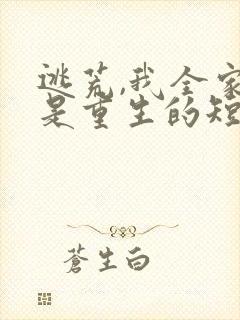 逃荒,我全家
是重生的短
蒼生白